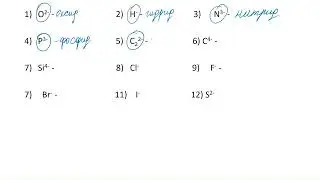 1) O²⁻ - оксид 2) H⁻ - гидрид 3) N³⁻ - нитрид
4) P³⁻ - фосфид 5) C₂²⁻ - 6) C⁴⁻ -
7) Si⁴⁻ - 8) Cl⁻ 9) F⁻ -
7) Br⁻ - 11) I⁻ 12) S²⁻